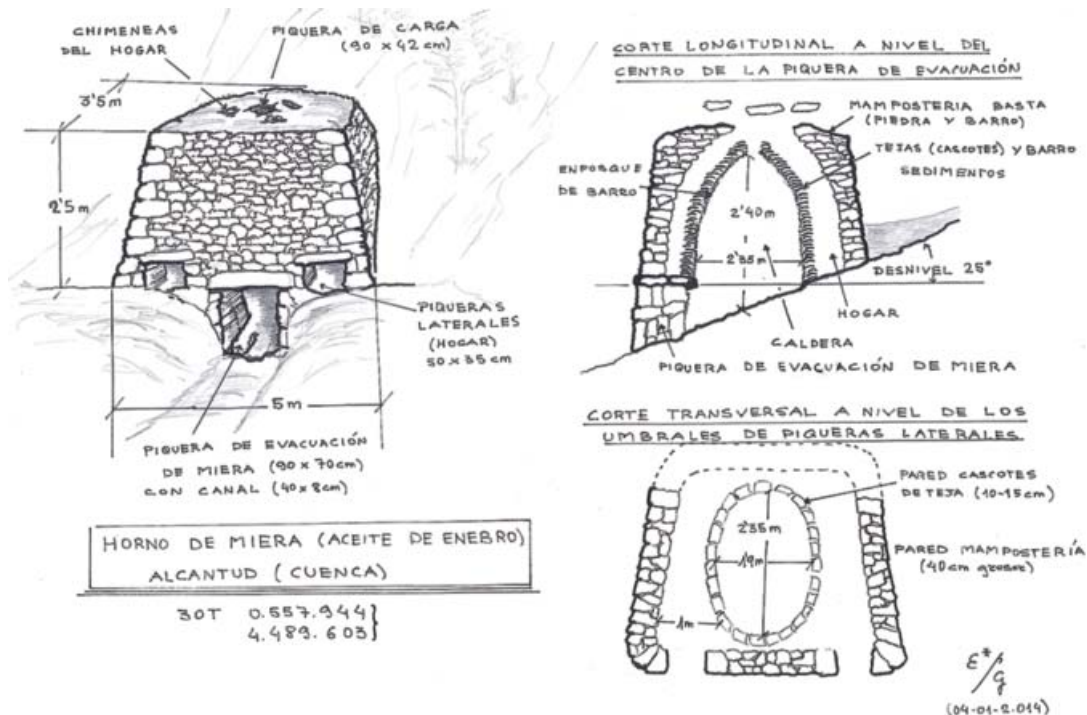 CHIMENEAS
DEL HOGAR
PIQUERA DE CARGA
(90 x 42 cm)
3'5m
2'5m
PIQUERAS
LATERALES
(HOGAR)
50 x 35 cm
5m
PIQUERA DE EVACUACIÓN
DE MIERA (90 x 70cm)
CON CANAL (40 x 8cm)
HORNO DE MIERA (ACEITE DE ENEBRO)
ALCANTUD (CUENCA)
30T 0.557.944}
4.489.603}
CORTE LONGITUDINAL A NIVEL DEL
CENTRO DE LA PIQUERA DE EVACUACIÓN
MAMPOSTERIA BASTA
(PIEDRA Y BARRO)
TEJAS (CASCOTES) Y BARRO
SEDIMENTOS
ENFOSQUE
DE BARRO
2'40m
2'35m
DESNIVEL 25°
HOGAR
CALDERA
PIQUERA DE EVACUACIÓN DE MIERA
CORTE TRANSVERSAL A NIVEL DE LOS
UMBRALES DE PIQUERAS LATERALES
PARED CASCOTES
DE TEJA (10-15cm)
2'35m
1'9m
PARED MAMPOSTERÍA
(40cm grosor)
1m
E*/G
(04-01-2.014)